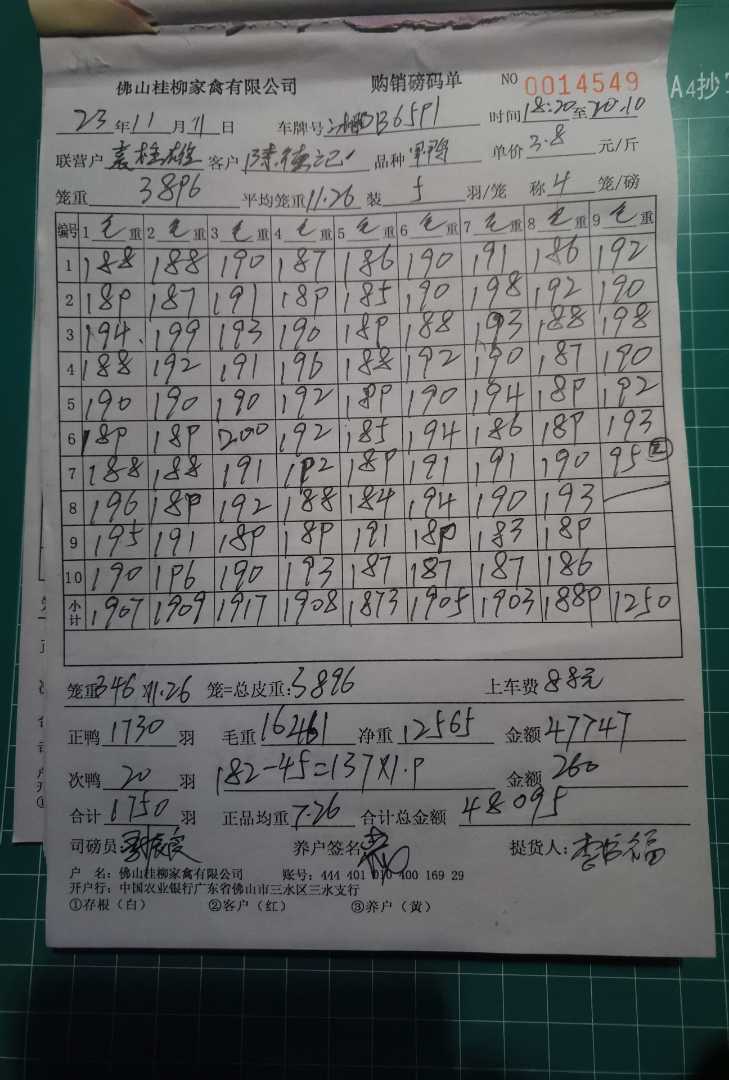 佛山桂柳家禽有限公司 购销磅码单 NO 0014549
A4抄
23年11月11日 车牌号 B6591 时间18:20至20:10
联营户 袁桂雄 客户 陈德记 品种 单价3.8元/斤
笼重 3896 平均笼重11.26 装 5 羽/笼 称 4 笼/磅
编号 1毛重 2毛重 3毛重 4毛重 5毛重 6毛重 7毛重 8毛重 9毛重
1 188 188 190 187 186 190 191 186 192
2 189 187 191 189 185 190 198 192 190
3 194 199 193 190 189 188 193 188 198
4 188 192 191 196 188 192 190 187 190
5 190 190 190 192 189 190 194 189 192
6 189 189 200 192 185 194 186 189 193
7 188 188 191 192 189 191 191 190 95②
8 196 189 192 188 184 194 190 193
9 195 191 189 189 191 189 183 189
10 190 196 190 193 187 187 187 186
小计 1907 1909 1917 1908 1873 1905 1903 1889 1250
笼重346×11.26 笼=总皮重:3896 上车费 88元
正鸭 1730 羽 毛重 16461 净重 12565 金额 47747
次鸭 20 羽 182-45=137×1.9 金额 260
合计 1750 羽 正品均重 7.26 合计总金额 48095
司磅员 养户签名 提货人:
户 名:佛山桂柳家禽有限公司 账号:444 401 010 400 169 29
开户行:中国农业银行广东省佛山市三水区三水支行
①存根(白) ②客户(红) ③养户(黄)